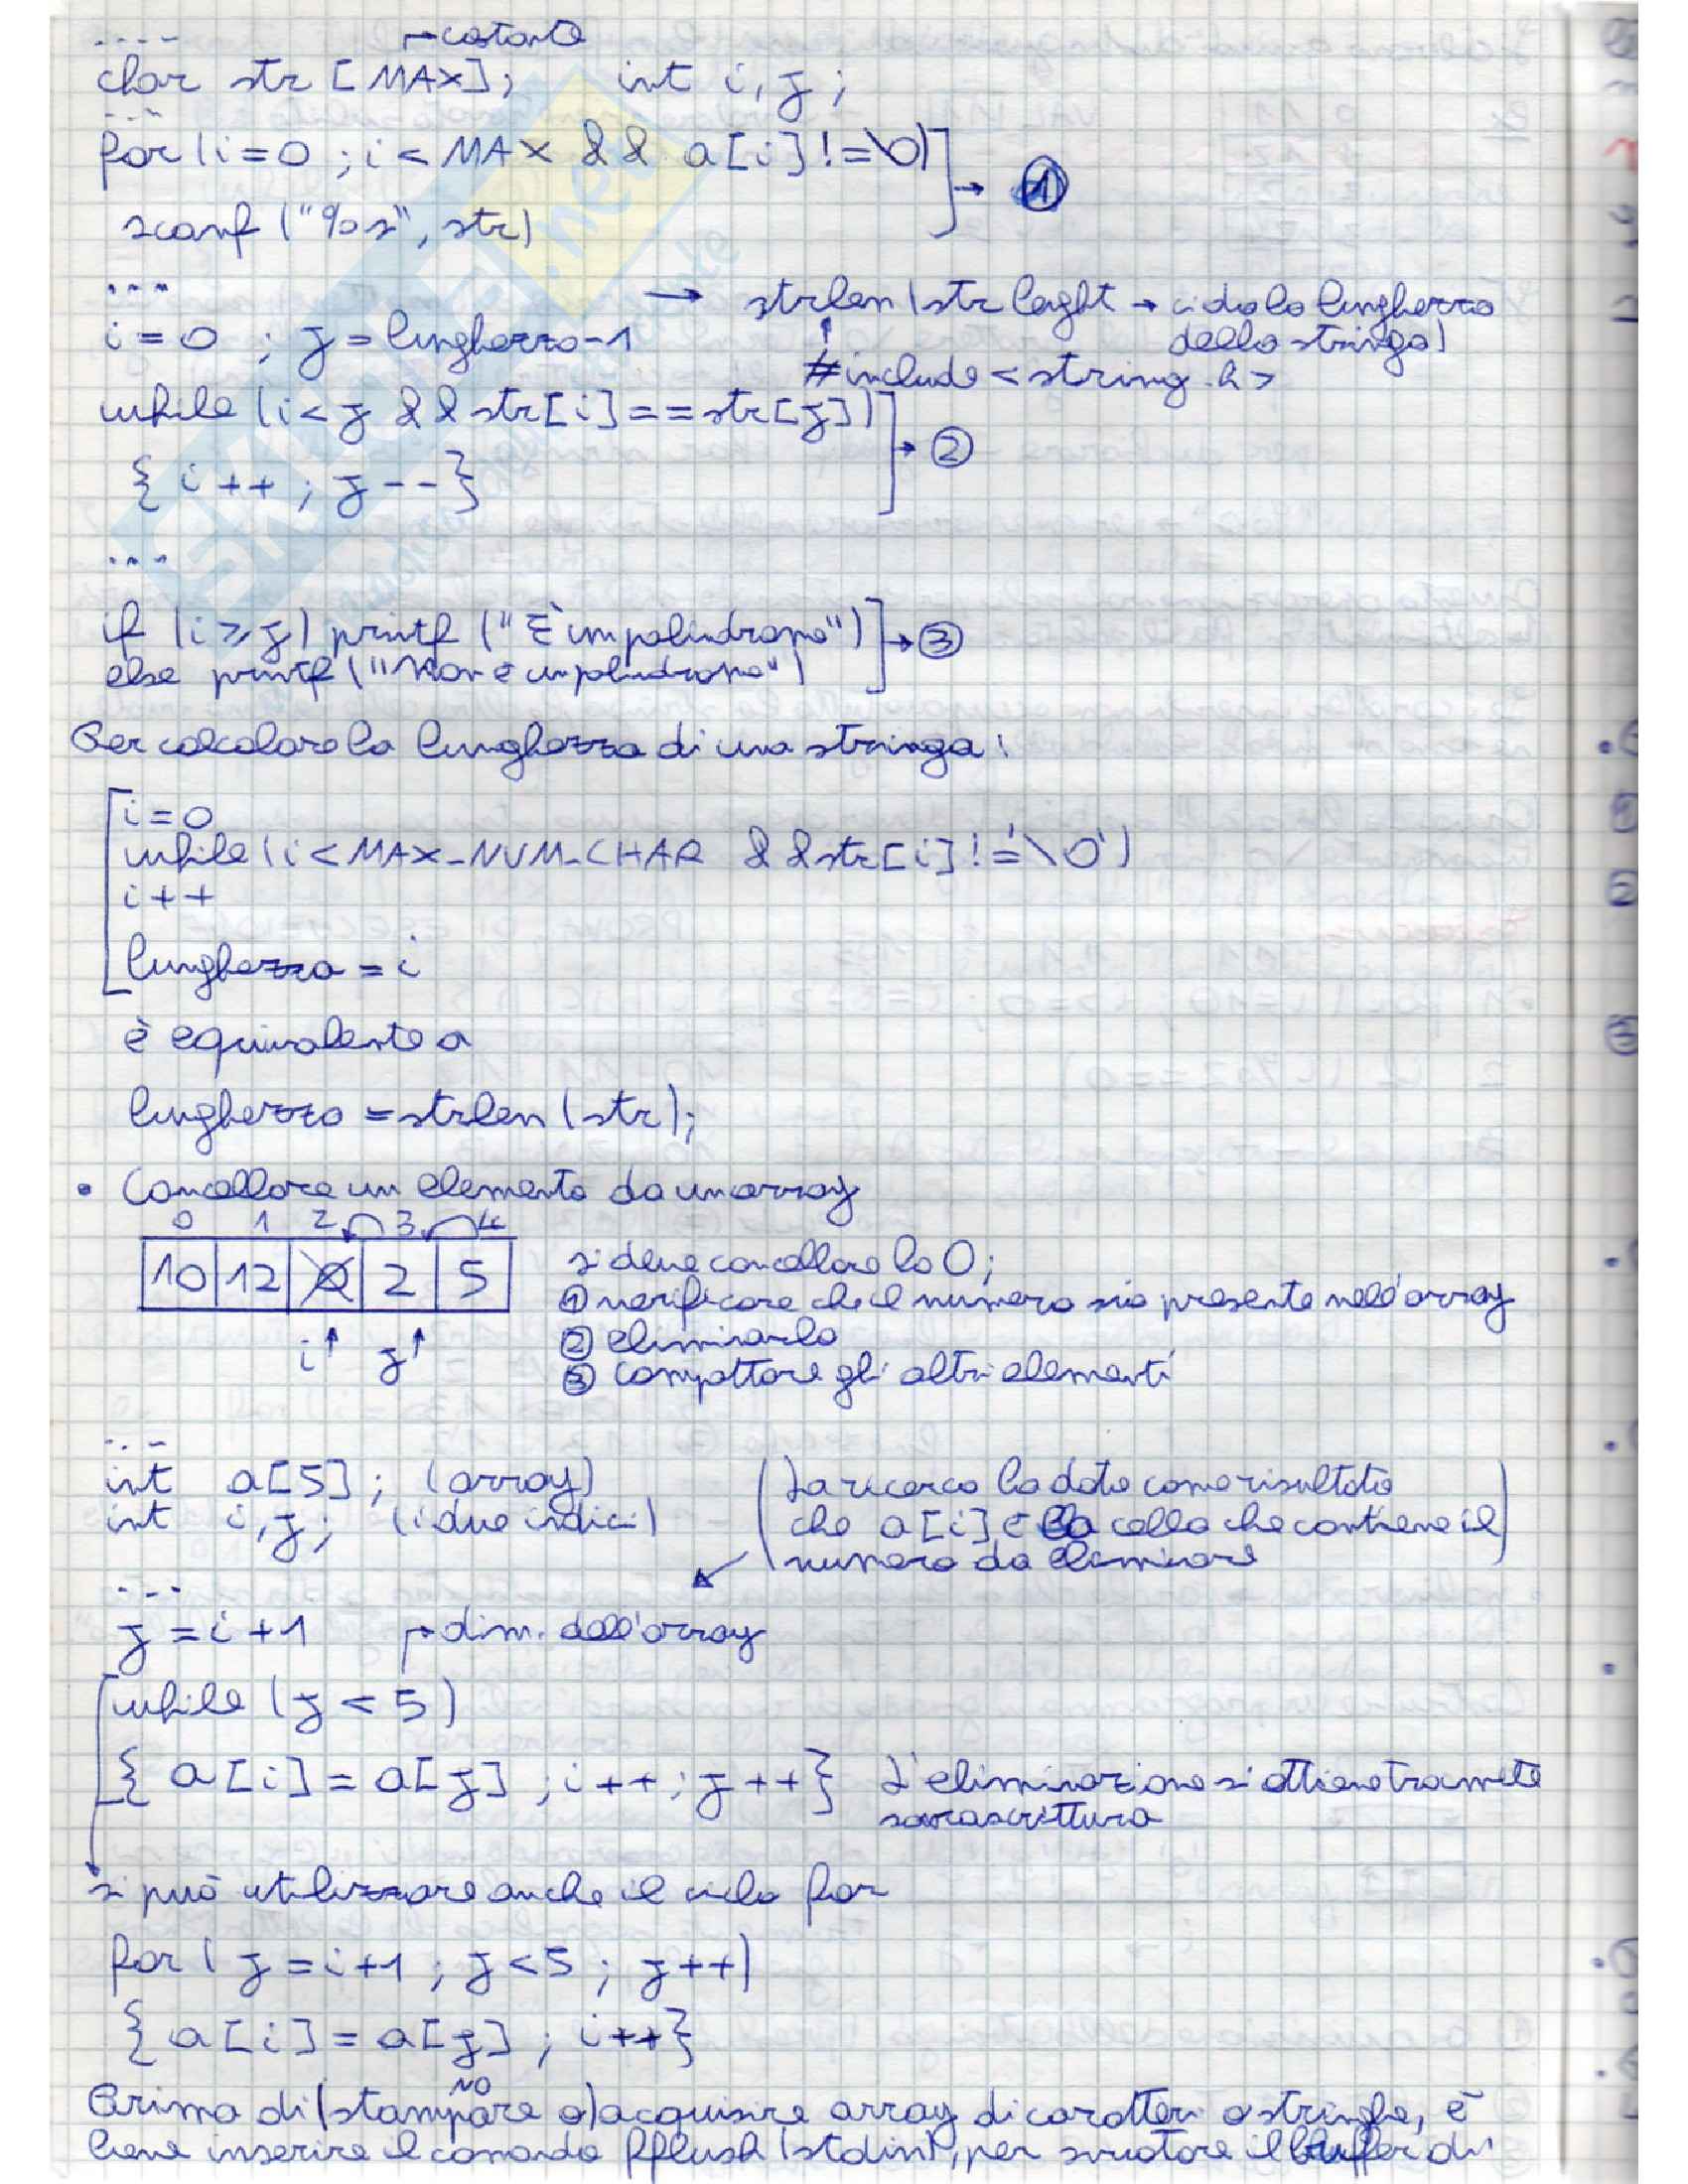 ....
→ costante
char str [MAX];   int i, j;
...
for (i=0 ; i < MAX && a[i] != \0) → 1
scanf ("%s", str)
...
→ strlen (str leght → ci da la lunghezza
della stringa)
i = 0 ; j = lunghezza-1
#include <string.h>
while (i < j && str[i] == str[j]) → 2
{ i++ ; j-- }
...
if (i ≥ j) printf ("È un palindromo") → 3
else printf ("Non è un palindromo")
Per calcolare la lunghezza di una stringa:
i=0
while (i < MAX_NUM_CHAR && str[i] != '\0')
i++
lunghezza = i
è equivalente a
lunghezza = strlen (str);
• Cancellare un elemento da un array
0 1 2 3 4
10 12 0 2 5
i↑ j↑
si deve cancellare lo 0;
① verificare che il numero sia presente nell'array
② eliminarlo
③ compattare gli altri elementi
...
int a[5]; (array)
int i, j; (i due indici)
(La ricerca ha dato come risultato
che a[i] è la cella che contiene il
numero da eliminare)
...
j = i+1   → dim. dell'array
while (j < 5)
{ a[i] = a[j] ; i++ ; j++ } L'eliminazione si ottiene tramite
sovrascrittura
si può utilizzare anche il ciclo for
for ( j = i+1 ; j < 5 ; j++)
{ a[i] = a[j] ; i++ }
NO
Prima di (stampare o) acquisire array di caratteri o stringhe, è
bene inserire il comando fflush (stdin), per svuotare il buffer di
SKUOLA.net